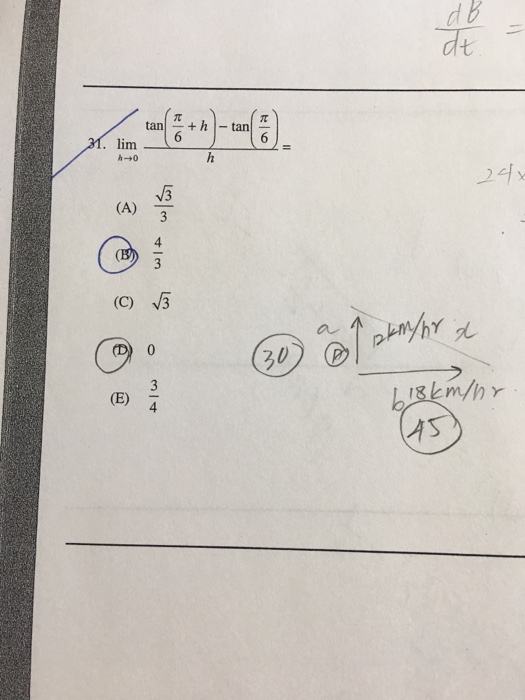 dB/dt =
31. lim h→0 (tan(π/6 + h) − tan(π/6))/h =
24x
(A) √3/3
(B) 4/3
(C) √3
(D) 0
30 a 12km/hr x
(E) 3/4
b 18km/hr
45